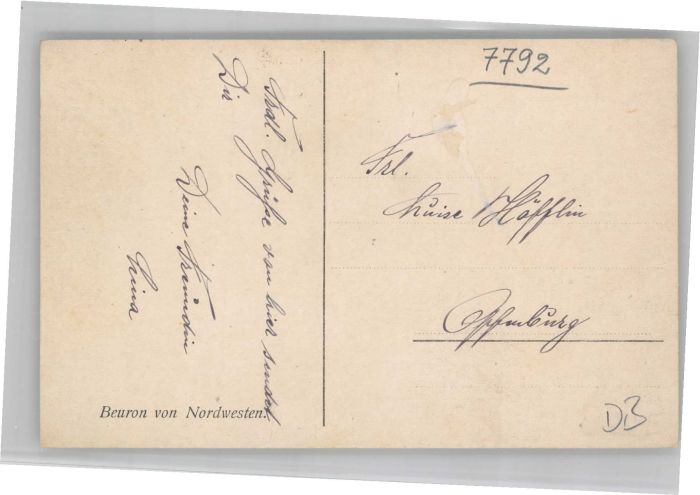 7792
Frdl. Grüße von hier sendet
Dir
Deine Freundin
Lina
Frl.
Luise Höfflin
Offenburg
Beuron von Nordwesten.
DB